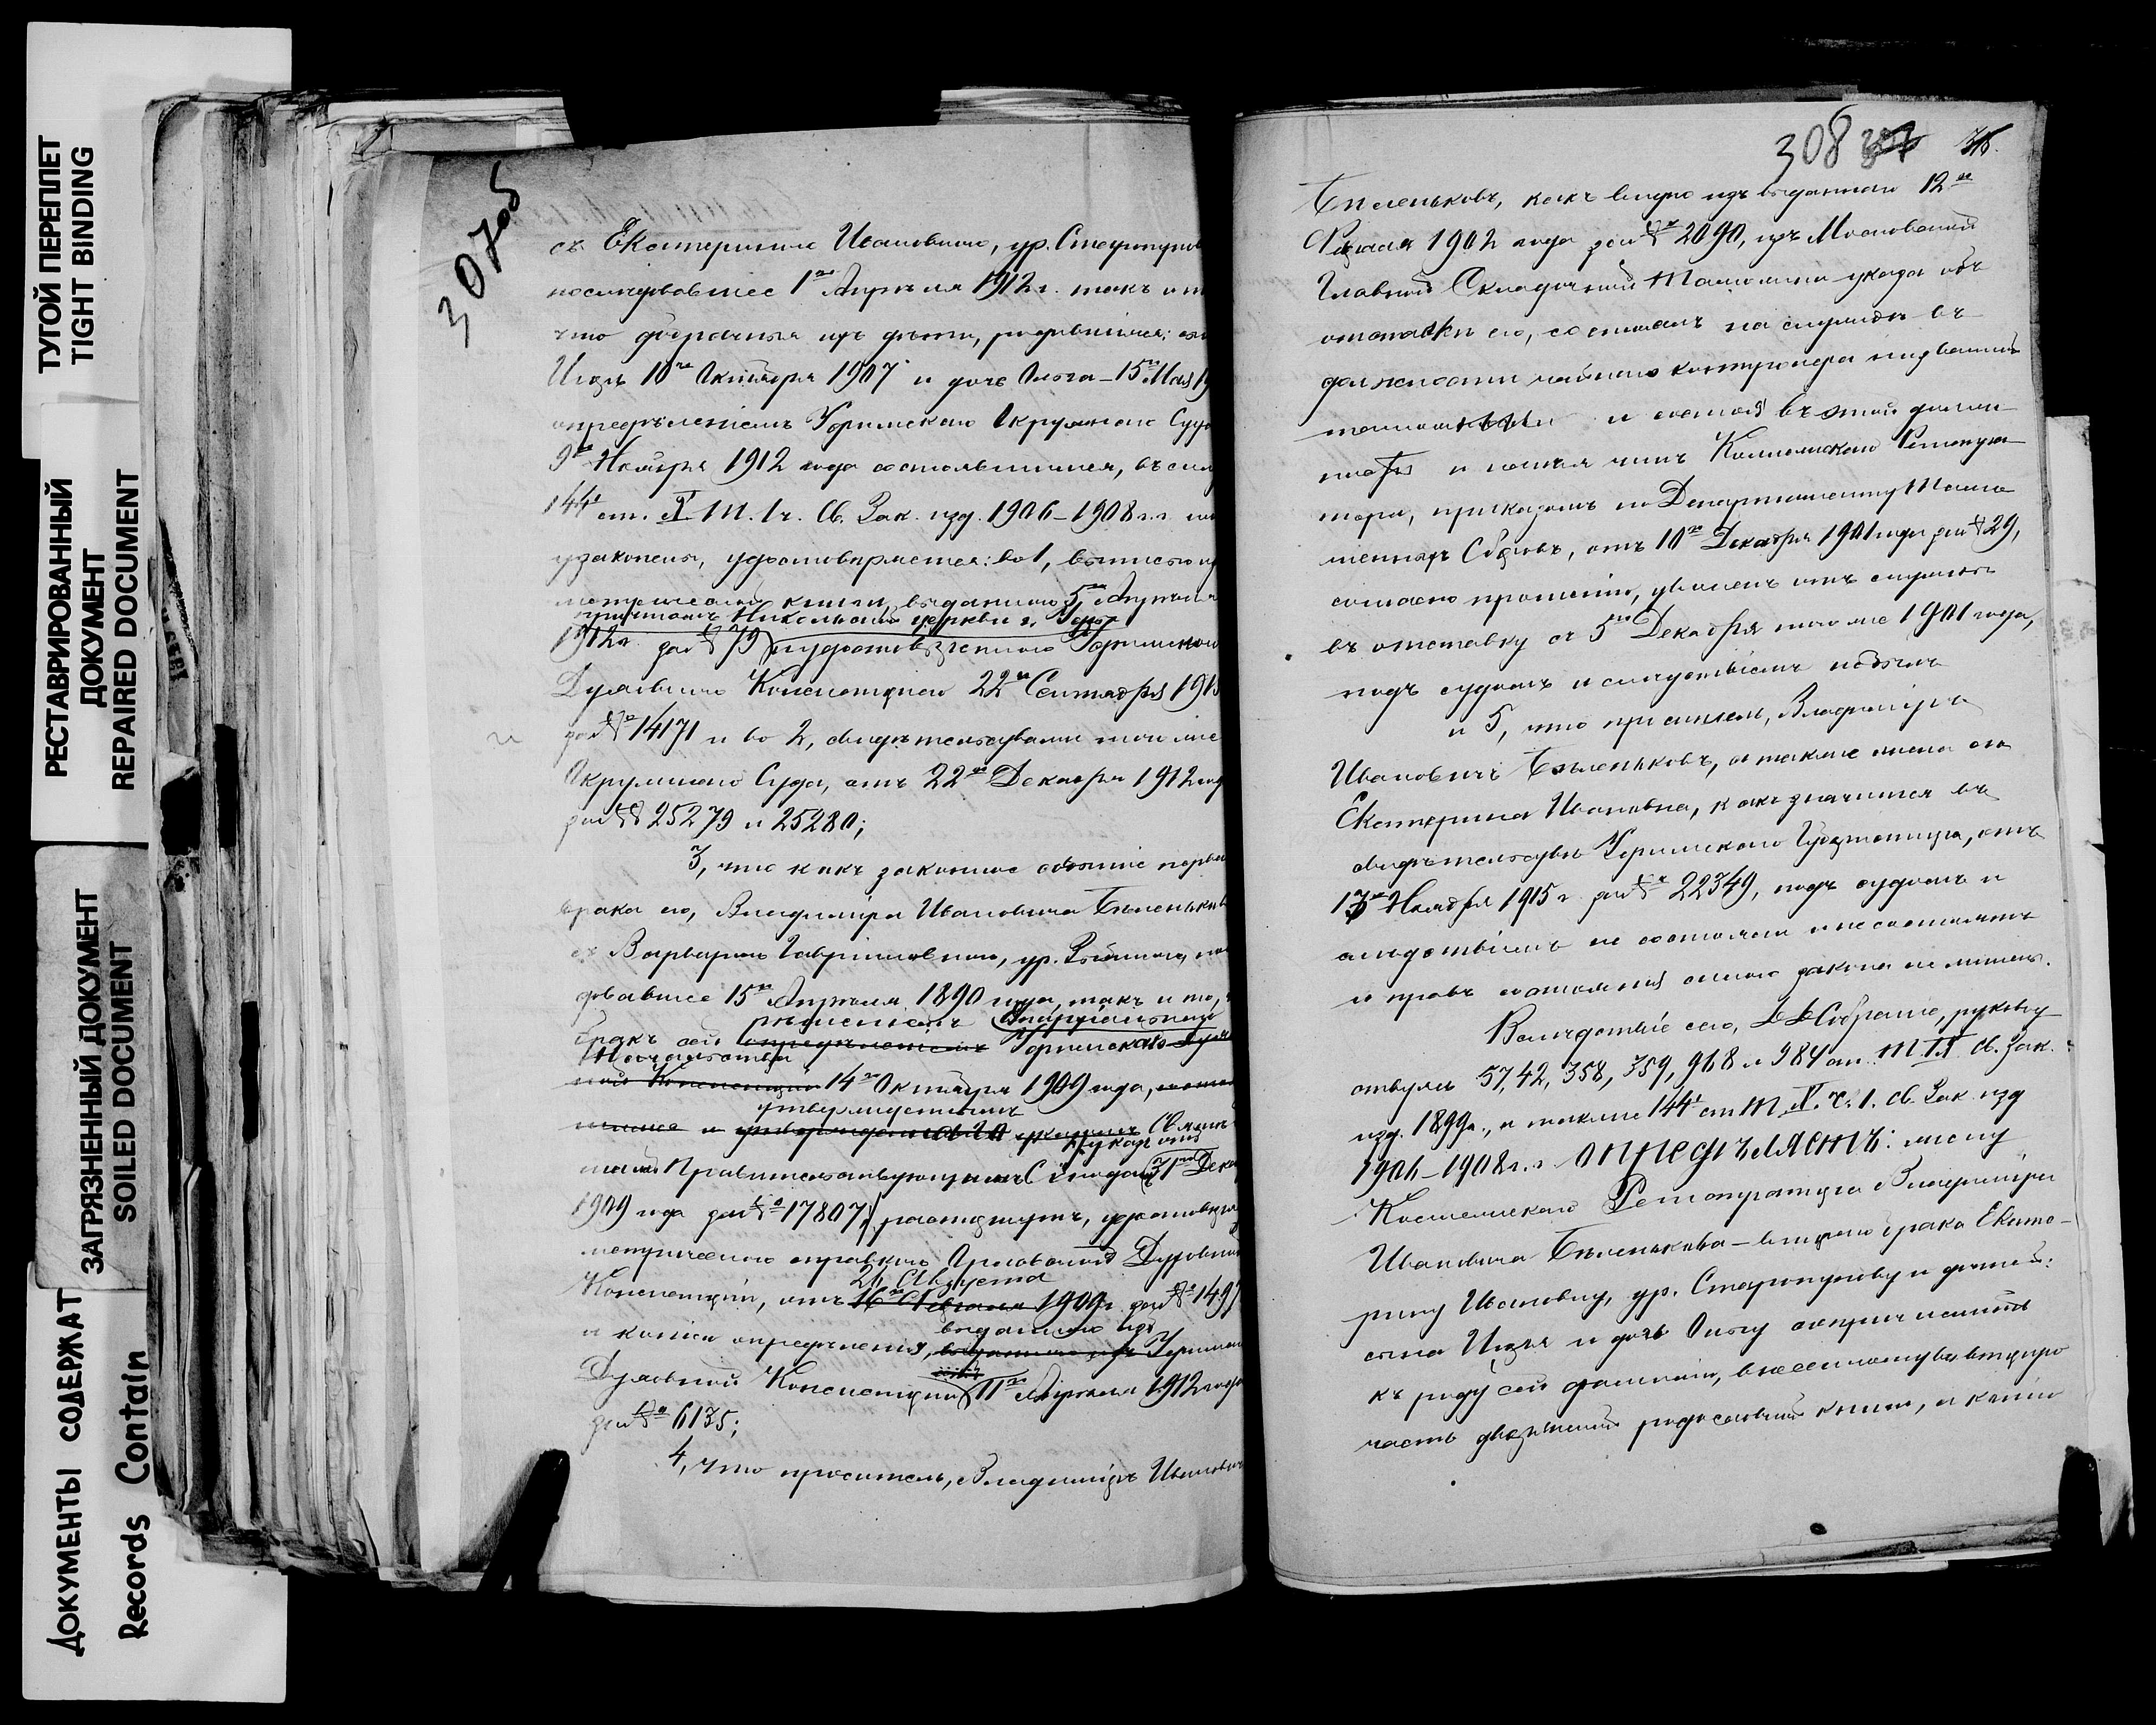 ТУГОЙ ПЕРЕПЛЕТ
TIGHT BINDING
РЕСТАВРИРОВАННЫЙ
ДОКУМЕНТ
REPAIRED DOCUMENT
ЗАГРЯЗНЕННЫЙ ДОКУМЕНТ
SOILED DOCUMENT
ДОКУМЕНТЫ СОДЕРЖАТ
Records Contain
307об
съ Екатериною Ивановною, ур. Старопупов
последовавшее 1го Апрѣля 1912 г. такъ и т
что добрачныя ихъ дѣти, родившіяся: сы
Игорь 10го Октября 1907 и дочь Ольга – 15го Мая 19
опредѣленіемъ Окружнаго Суда
9го Ноября 1912 года состоявшимся, въ си
144¹ ст. X т. 1 ч. Св. Зак. изд. 1906–1908 г.г.
узаконены, удостовѣряется: во 1, выписью из
метрической книги, выданною 5го Апрѣля
причтомъ Никольской церкви г.
1912 г. за № 79
Духовною Консисторіею 22го Сентября 191
за № 14171 и во 2, свидѣтельствами того же
Окружнаго Суда, отъ 22го Декабря 1912 год
за №№ 25279 и 25280;
3, что какъ законное событіе перва
брака его, Владиміра Ивановича Бѣленьков
съ Варварою Гавриловною, ур.
довавшее 15го Апрѣля 1890 года, такъ и то,
бракъ сей рѣшеніемъ Епархіальнаго
Начальства
14го Октября 1909 года,
утвержденнымъ
Святѣй
шимъ Правительствующимъ Синодомъ (указъ отъ 31го Дека
1909 года за № 17807) расторгнутъ,
метрическою справкою Орловской Духовной
Консисторіи, отъ 26 Августа 1909 г. за № 1497
и копіею опредѣленія, выданною изъ
Духовной Консисторіи 11го Апрѣля 1912 года
за № 6135;
4, что проситель, Владиміръ Иванович
308
Бѣленьковъ, какъ видно изъ выданнаго 12го
1902 года за № 2090, изъ Московской
Главной Складочной Таможни указа объ
отставкѣ его, состоялъ на службѣ въ
должности контролера названной
таможни и состоя въ этой долж
ности и имѣя чинъ Коллежскаго Регистра
тора, приказомъ по Департаменту Тамо
женныхъ Сборовъ, отъ 10го Декабря 1901 года за № 29,
согласно прошенію, уволенъ отъ службы
въ отставку съ 5го Декабря того же 1901 года,
подъ судомъ и слѣдствіемъ не былъ
и 5, что проситель, Владиміръ
Ивановичъ Бѣленьковъ, а также жена его
Екатерина Ивановна, какъ значится въ
свидѣтельствѣ Губернатора, отъ
13го Ноября 1915 г. за № 22349, подъ судомъ и
слѣдствіемъ не состояли и не состоятъ
и правъ состоянія силою закона не лишены.
Вслѣдствіе сего, Д. Д. Собраніе, руковод
ствуясь 37, 42, 358, 359, 968 и 984 ст. т. IX Св. Зак.
изд. 1899 г., а также 144¹ ст. т. X. ч. 1. Св. Зак. изд
1906–1908 г.г. опредѣляетъ: жену
Коллежскаго Регистратора Владиміра
Ивановича Бѣленькова – второго брака Екате-
рину Ивановну, ур. Старопупову и дѣтей:
сына Игоря и дочь Ольгу сопричислить
къ роду сей фамиліи, внесенному во вторую
часть дворянской родословной книги, и копію